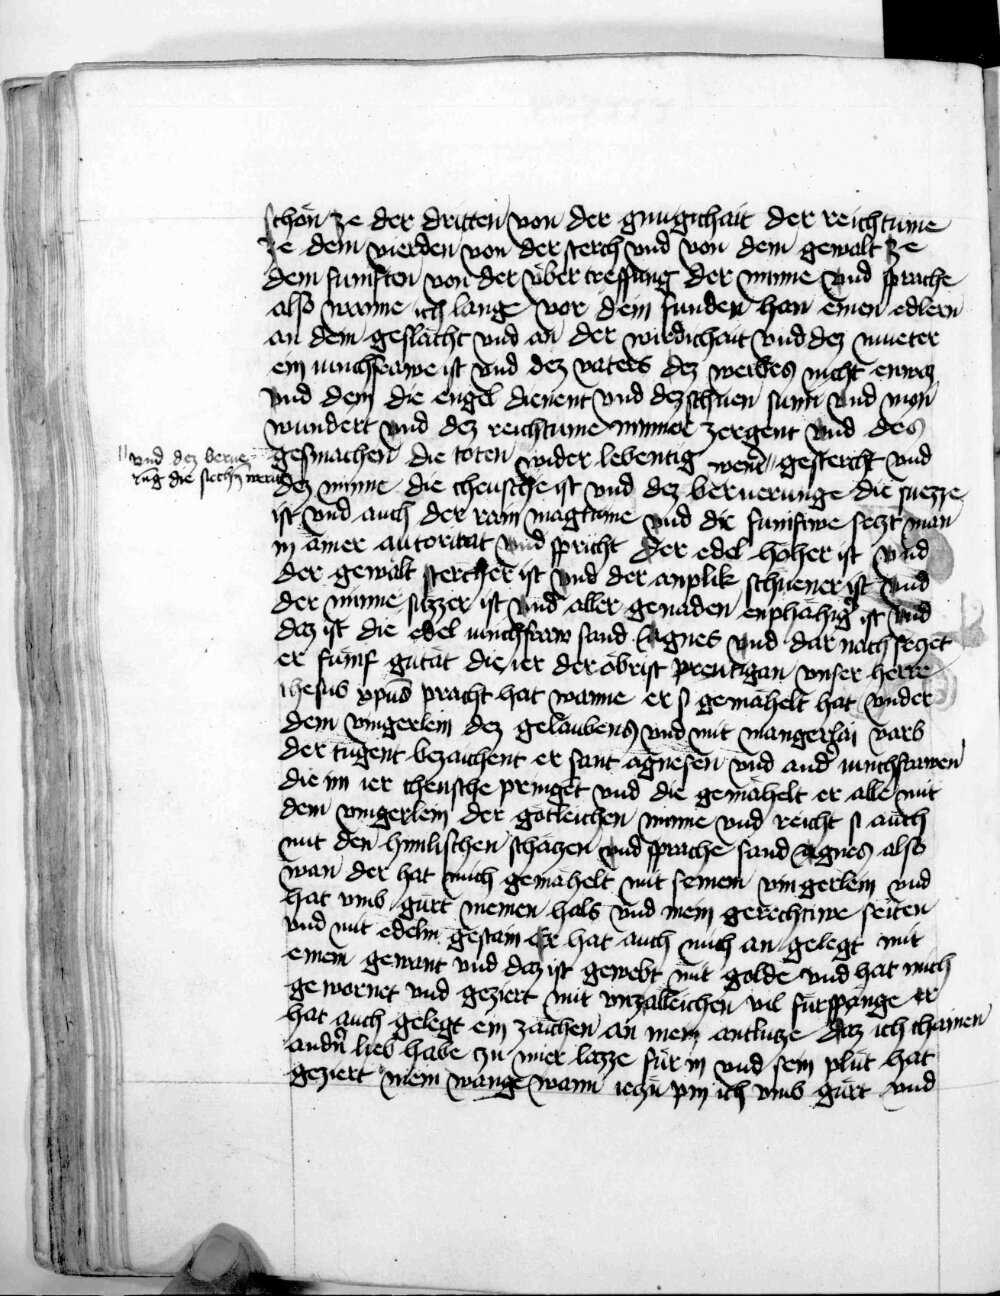 schön ze der dritten von der gnugichait der reichtume
ze dem vierden von der sterch vnd von dem gewalt ze
dem fumften von der über treffung der minne vnd sprache
also wanne ich lange vor dem funden han einen edlern
an dem geslächt vnd an der wirdichait vnd dez mueter
ein iunchfrawe ist vnd dez vaters dez weibes nicht enwaz
vnd dem die engel dienent vnd dez schüen sunn vnd mon
wundert vnd dez reichtume nimmer zergent vnd des
gesmachen die toten wider lebentig werdent gesterchet vnd
vnd dez berue=
rug die siechn werdent
dez minne die cheusche ist vnd dez beruerunge die suezze
ist vnd auch der rain magtume vnd die fumfewe sezt man
in ainer autoritat vnd spricht Der edel höher ist vnd
der gewalt stercher ist vnd der anplik schüener ist vnd
der minne süzzer ist vnd aller genaden enphähig ist vnd
daz ist die edel iunchfraw sand Agnes vnd dar nach sezet
er fümf gutät die ier der öbrist preutigan vnser herre
ihesus xpus pracht hat wanne er si gemähelt hat vnder
dem vingerlein dez gelaubens vnd mit mangerlai varb
der tugent bezaichent er sant agnesen vnd and iunchfrawen
die im ier cheusche pringet vnd die gemähelt er alle mit
dem vingerlein der götleichen minne vnd reicht si auch
mit den himlischen schätzen vnd sprache sand Agnes also
wan der hat mich gemähelt mit seinem vingerlein vnd
hat vmb gürt meinen hals vnd mein gerechtiwe seiten
vnd mit edelm gestain er hat auch mich an gelegt mit
einem gewant vnd daz ist gewebt mit golde vnd hat mich
gewornet vnd geziert mit vnzalleichen vil fürspange er
hat auch gelegt ein zaichen an mein antlutze daz ich chainen
andn lieb habe zu mier lazze für in vnd sein plüt hat
geziert mein wange wann iezu pin ich vmb gürt vnd